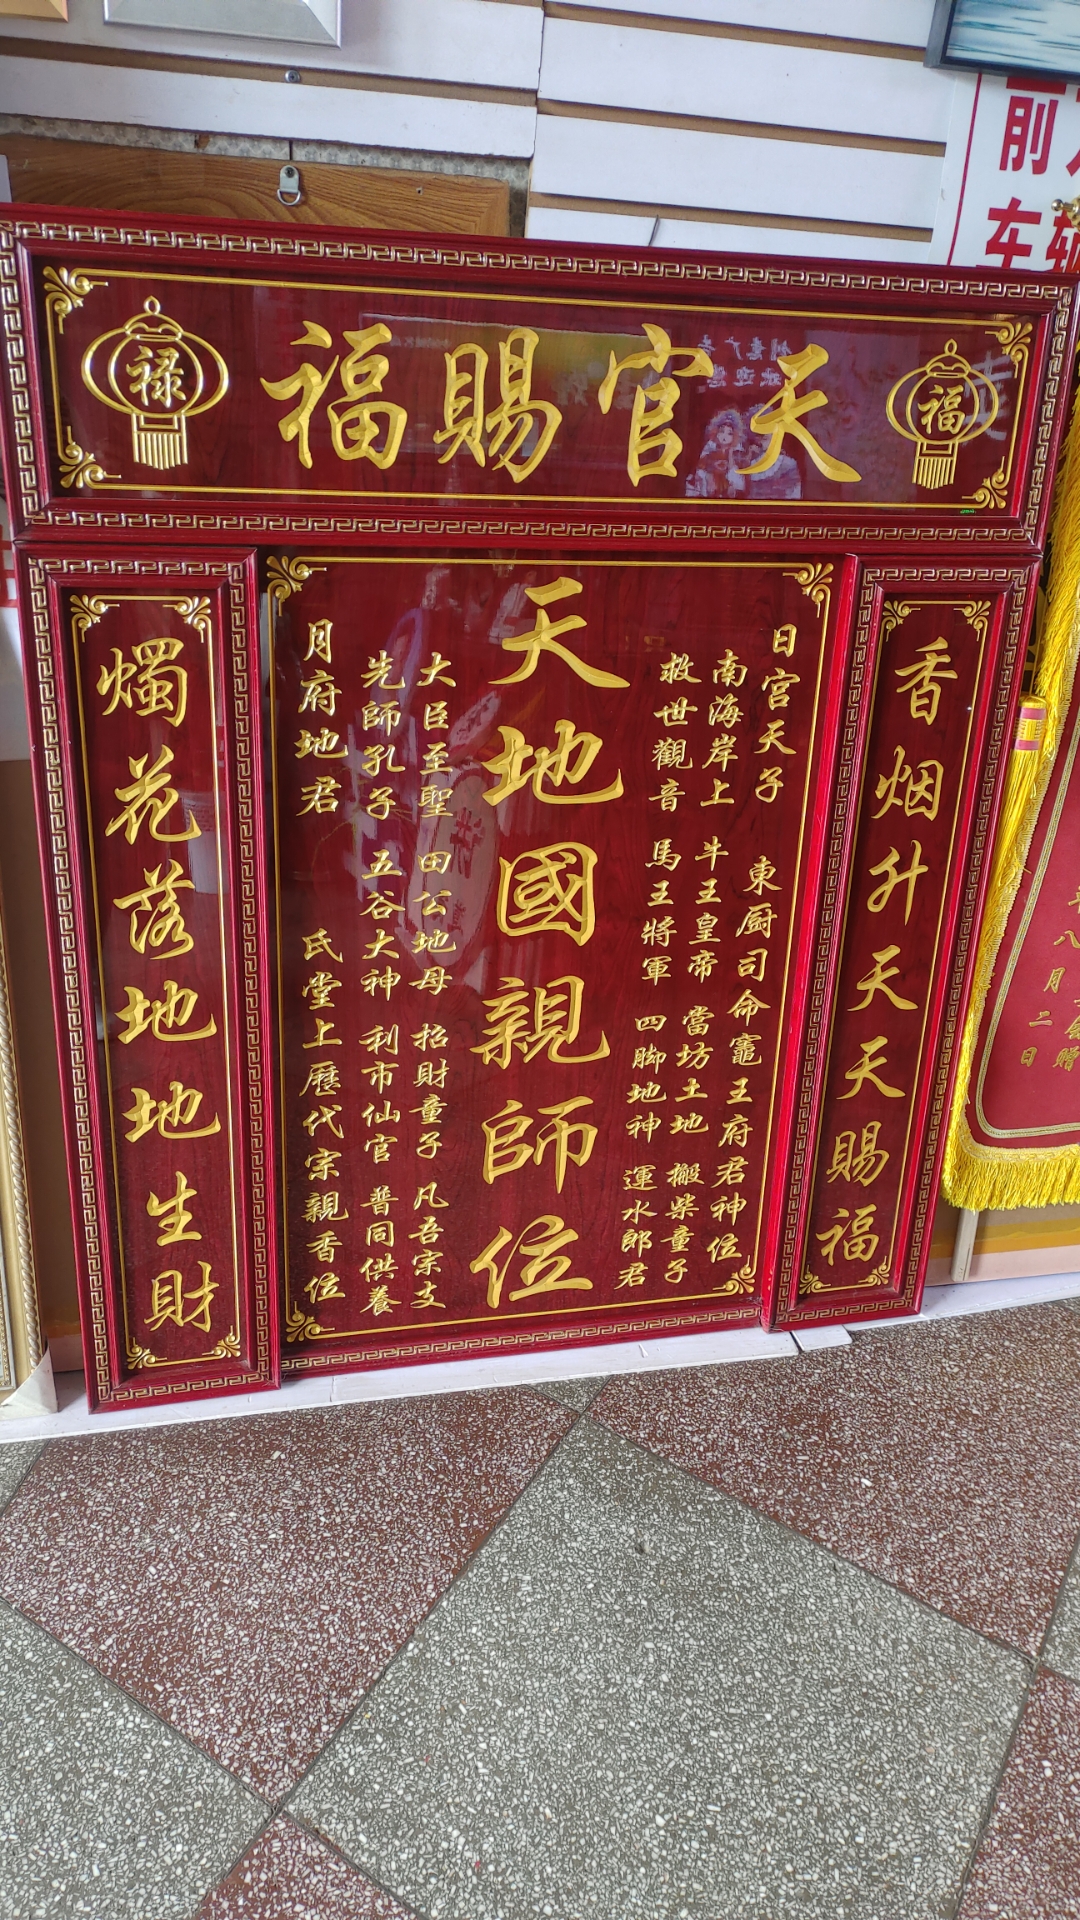 天官賜福
福
禄
香烟升天天賜福
日宫天子 東厨司命竈王府君神位
南海岸上 牛王皇帝 當坊土地 搬柴童子
救世觀音 馬王將軍 四脚地神 運水郎君
天地國親師位
大臣至聖 田公地母 招財童子 凡吾宗支
先師孔子 五谷大神 利市仙官 普同供養
月府地君 氏堂上歷代宗親香位
燭花落地地生財
前
车辆
八月二日
贈